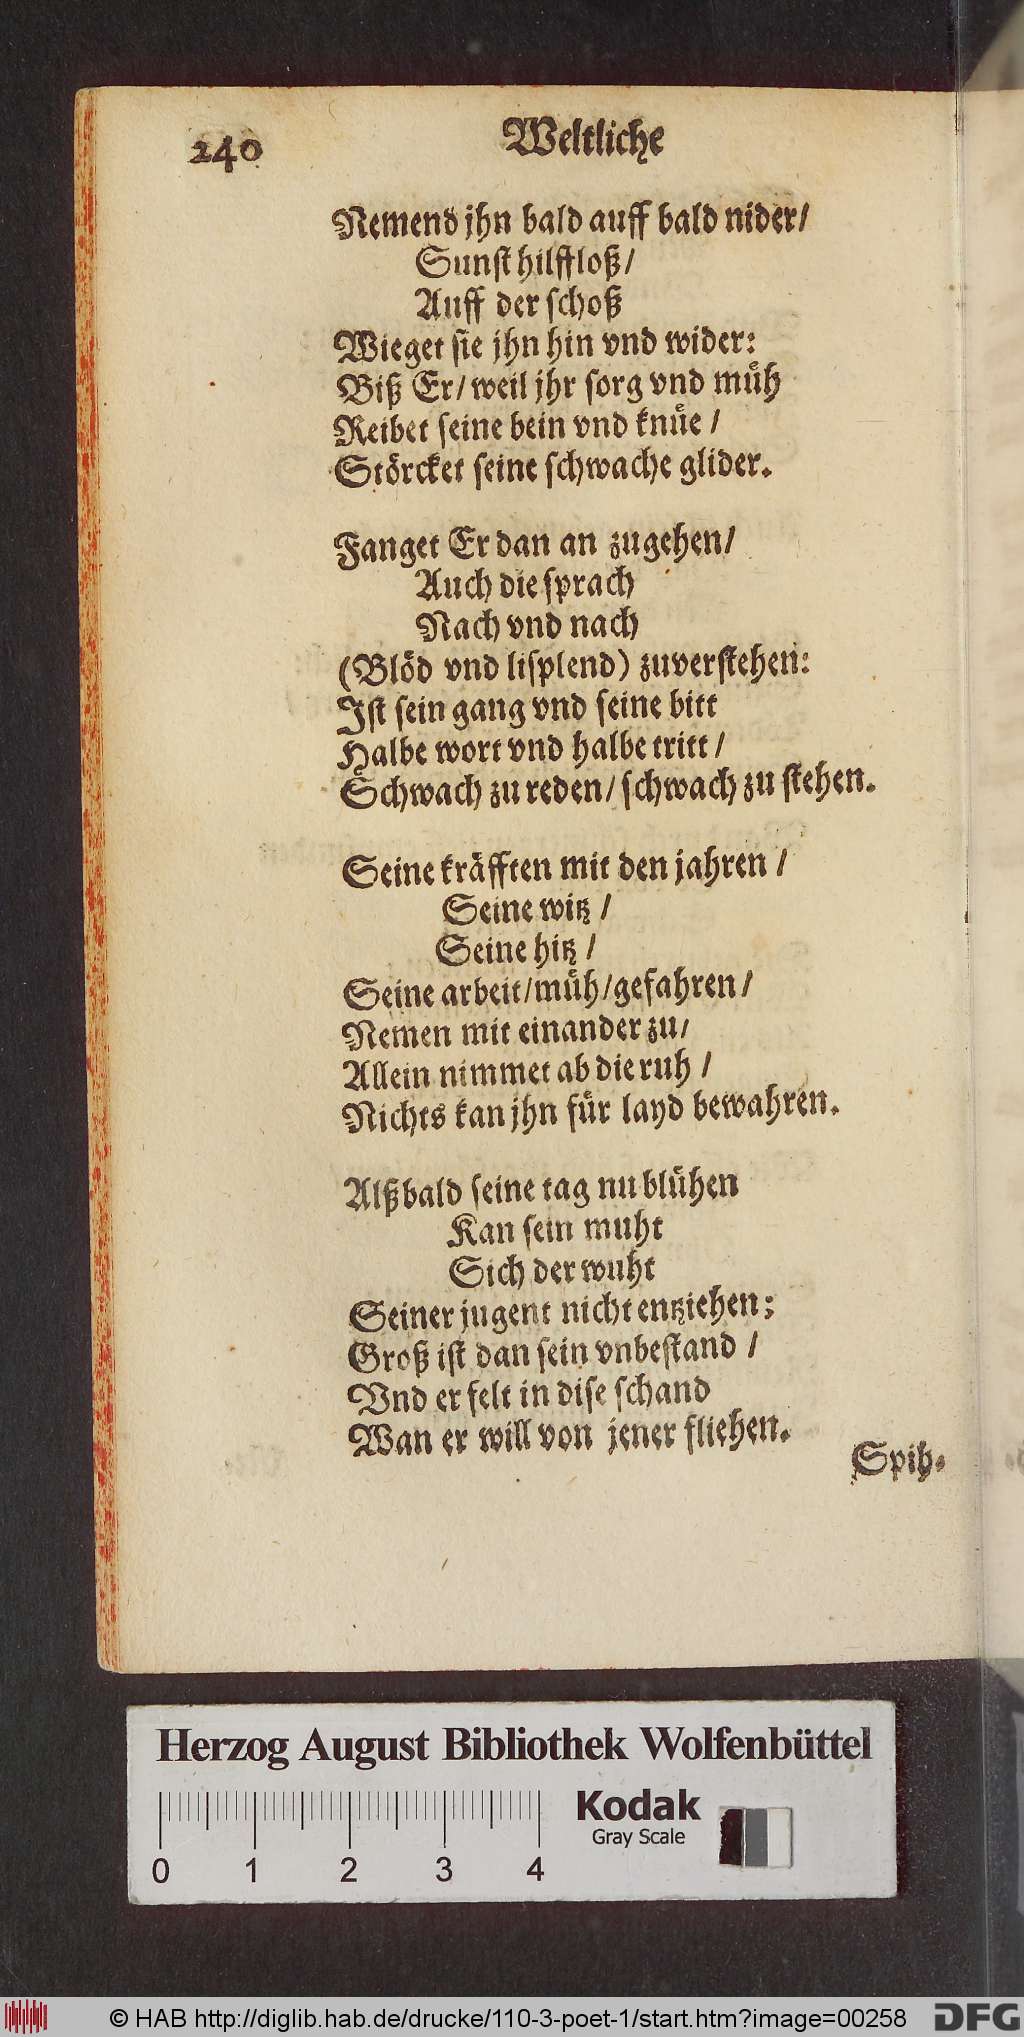 240 Weltliche
Nemend jhn bald auff bald nider/
Sunst hilffloß/
Auff der schoß
Wieget sie jhn hin vnd wider:
Biß Er/ weil jhr sorg vnd muͤh
Reibet seine bein vnd knuͤe /
Stoͤrcket seine schwache glider.
Fanget Er dan an zugehen/
Auch die sprach
Nach vnd nach
(Bloͤd vnd lisplend) zuverstehen:
Ist sein gang vnd seine bitt
Halbe wort vnd halbe tritt /
Schwach zu reden/ schwach zu stehen.
Seine kraͤfften mit den jahren /
Seine witz /
Seine hitz /
Seine arbeit/muͤh/gefahren/
Nemen mit einander zu/
Allein nimmet ab die ruh /
Nichts kan jhn fuͤr layd bewahren.
Alßbald seine tag nu bluͤhen
Kan sein muht
Sich der wuht
Seiner jugent nicht entziehen;
Groß ist dan sein vnbestand /
Vnd er felt in dise schand
Wan er will von jener fliehen.
Spih-
Herzog August Bibliothek Wolfenbüttel
Kodak
Gray Scale
0 1 2 3 4
© HAB http://diglib.hab.de/drucke/110-3-poet-1/start.htm?image=00258
DFG